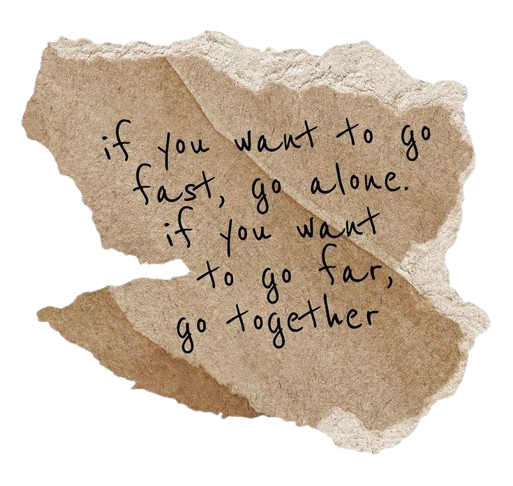 if you want to go
fast, go alone.
if you want
to go far,
go together